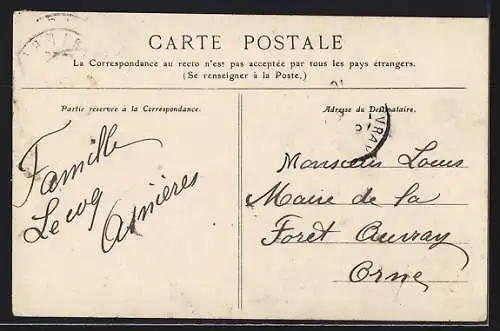 CARTE POSTALE
La Correspondance au recto n'est pas acceptée par tous les pays étrangers.
(Se renseigner à la Poste.)
Partie réservée à la Correspondance.
Famille
Lecoq
Asnières
Adresse du Destinataire.
Monsieur Louis
Maire de la
Forêt Auvray
Orne